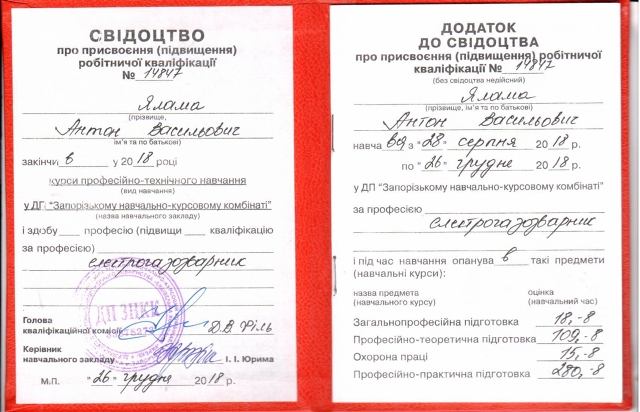 СВІДОЦТВО
про присвоєння (підвищення)
робітничої кваліфікації
№ 14847
Ялама
(прізвище,
Антон Васильович
ім'я та по батькові)
закінчи в у 2018 році
курси професійно-технічного навчання
(вид навчання)
у ДП "Запорізькому навчально-курсовому комбінаті"
(назва навчального закладу)
і здобу професію (підвищи кваліфікацію
за професією)
електрогазозварник
ДП ЗНКК
Голова
кваліфікаційної комісії Д.В. Філь
Керівник
навчального закладу І. І. Юрима
М.П. "26" грудня 2018 р.
ДОДАТОК
ДО СВІДОЦТВА
про присвоєння (підвищення) робітничої
кваліфікації № 14847
(без свідоцтва недійсний)
Ялама
(прізвище, ім'я та по батькові)
Антон Васильович
навча вся з "28" серпня 2018 р.
по "26" грудня 2018 р.
у ДП "Запорізькому навчально-курсовому комбінаті"
за професією
електрогазозварник
і під час навчання опанува в такі предмети
(навчальні курси):
назва предмета оцінка
(навчального курсу) (навчальний час)
Загальнопрофесійна підготовка 18,-8
Професійно-теоретична підготовка 109,-8
Охорона праці 15,-8
Професійно-практична підготовка 280,-8